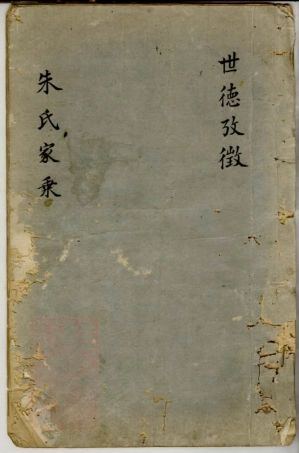 世德攷徵
朱氏家乘